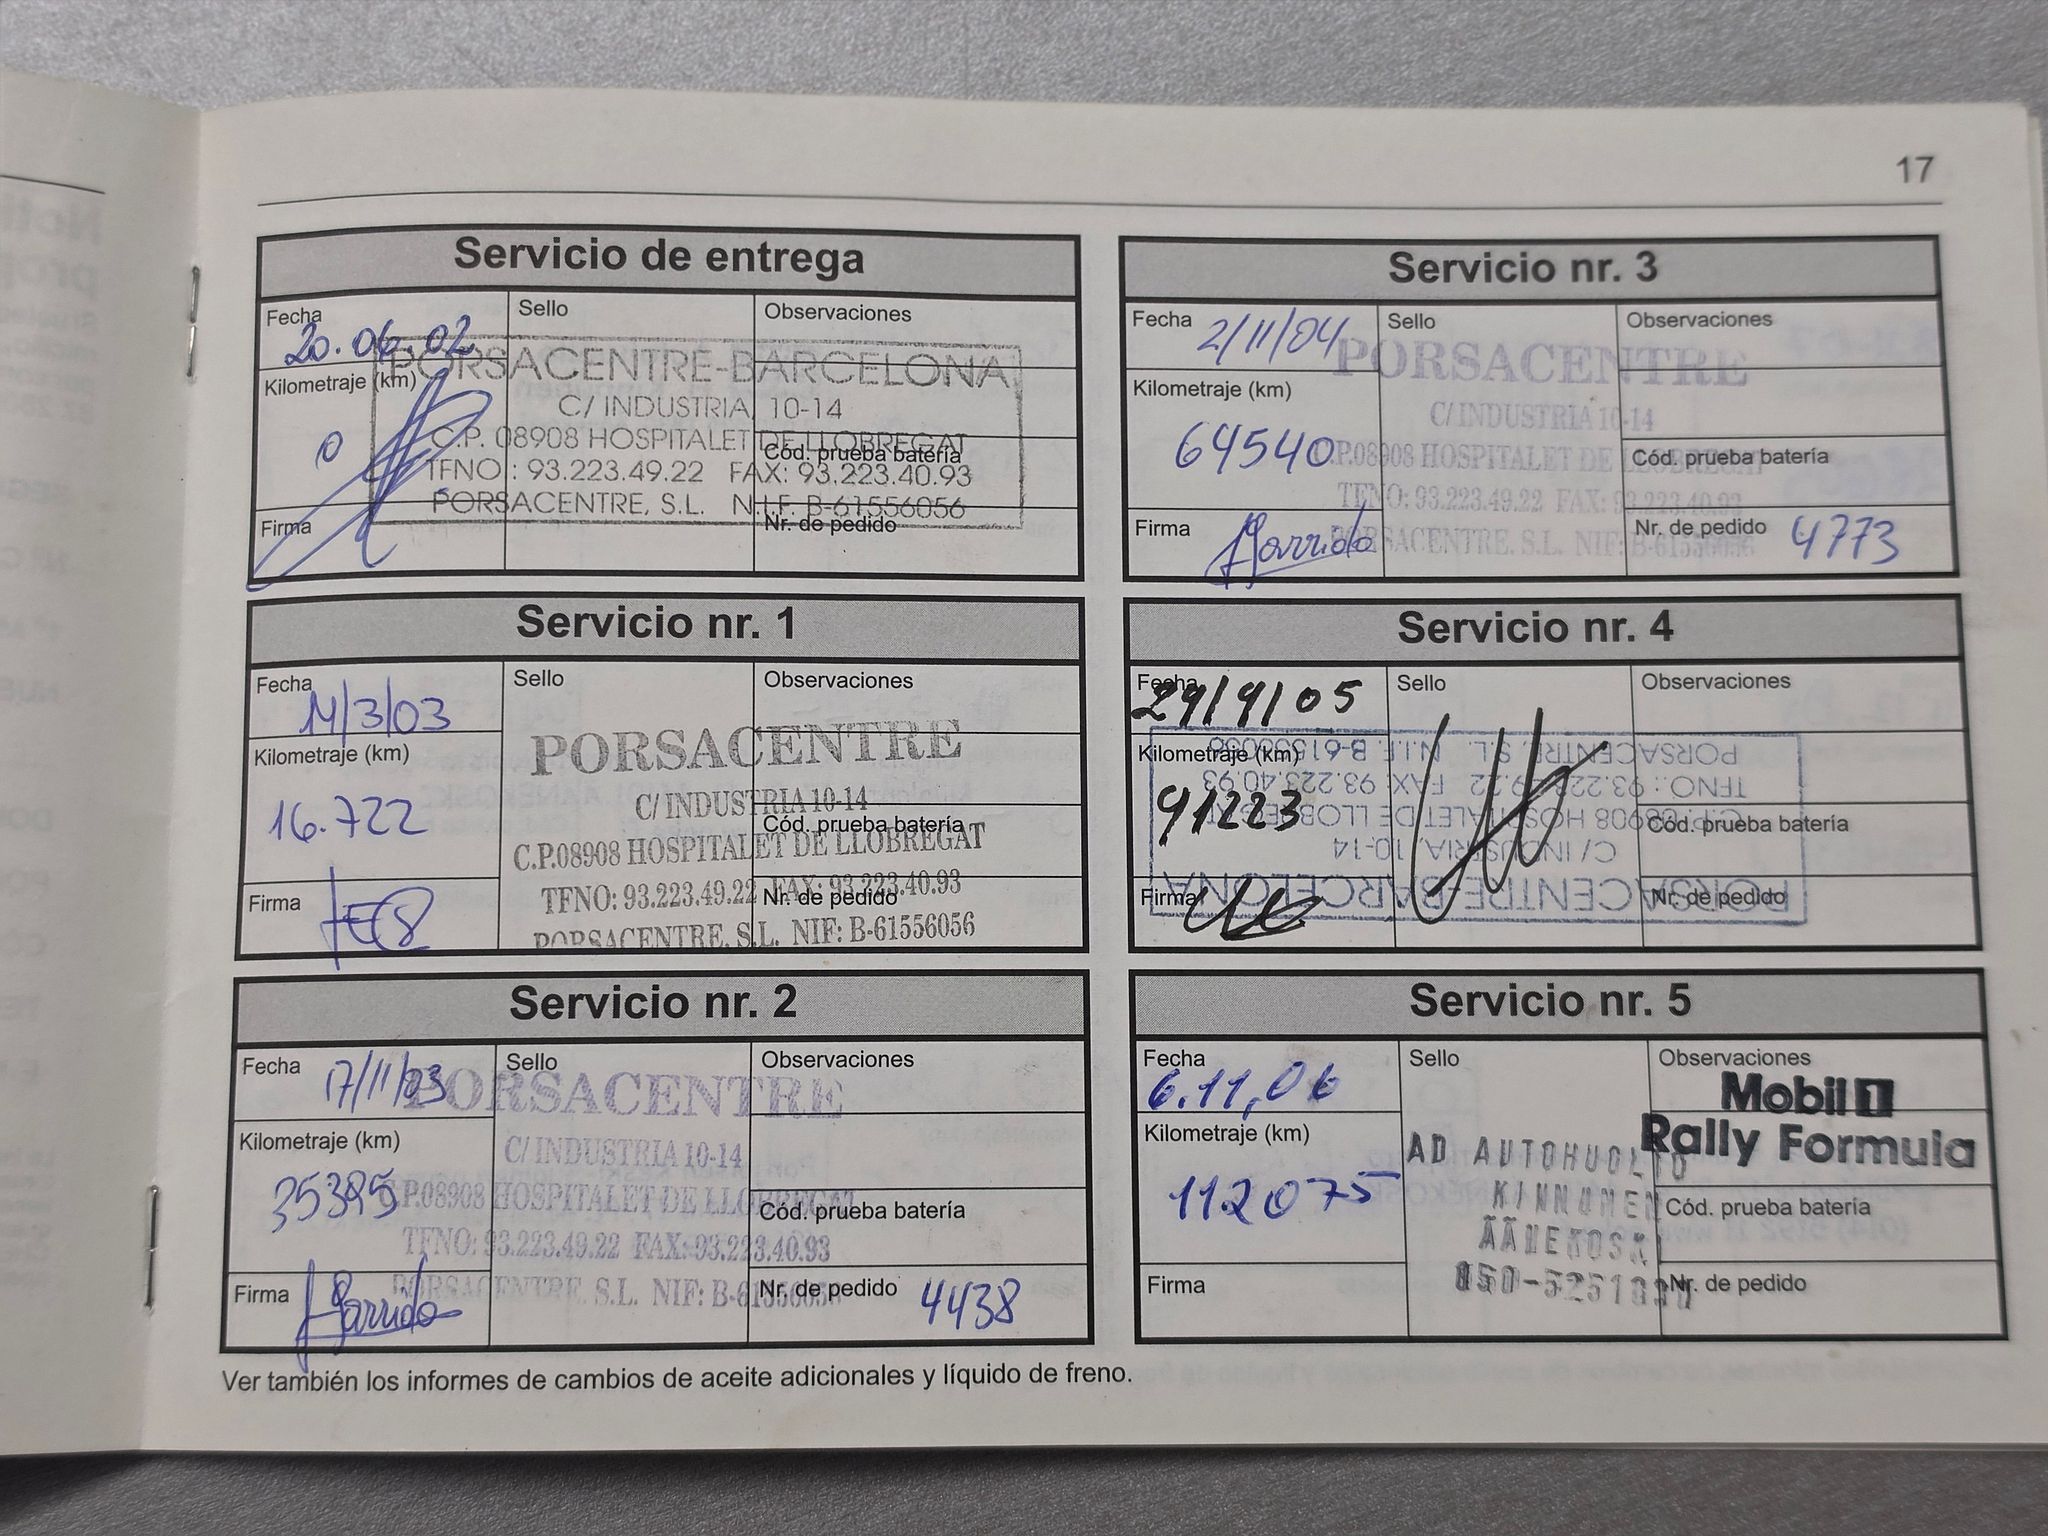 17
Servicio de entrega
Fecha 20.06.02
Sello
Observaciones
Kilometraje (km)
0
Cód. prueba batería
Firma
Nr. de pedido
PORSACENTRE-BARCELONA
C/ INDUSTRIA, 10-14
C.P. 08908 HOSPITALET DE LLOBREGAT
TFNO.: 93.223.49.22 FAX: 93.223.40.93
PORSACENTRE, S.L. N.I.F. B-61556056
Servicio nr. 1
Fecha
/3/03
Sello
Observaciones
Kilometraje (km)
16.722
Cód. prueba batería
Firma
Nr. de pedido
PORSACENTRE
C/ INDUSTRIA 10-14
C.P.08908 HOSPITALET DE LLOBREGAT
TFNO: 93.223.49.22 FAX: 93.223.40.93
PORSACENTRE, S.L. NIF: B-61556056
Servicio nr. 2
Fecha 17/11/03
Sello
Observaciones
Kilometraje (km)
Cód. prueba batería
Firma Garrido
Nr. de pedido 4438
PORSACENTRE
C/ INDUSTRIA 10-14
C.P.08908 HOSPITALET DE LLOBREGAT
TFNO: 93.223.49.22 FAX: 93.223.40.93
PORSACENTRE, S.L. NIF: B-61556056
Servicio nr. 3
Fecha 2/11/04
Sello
Observaciones
Kilometraje (km)
64540
Cód. prueba batería
Firma Garrido
Nr. de pedido 4773
PORSACENTRE
C/ INDUSTRIA 10-14
C.P.08908 HOSPITALET DE LLOBREGAT
TFNO: 93.223.49.22 FAX: 93.223.40.93
PORSACENTRE, S.L. NIF: B-61556056
Servicio nr. 4
Fecha
29/9/05
Sello
Observaciones
Kilometraje (km)
91223
Cód. prueba batería
Firma
Nr. de pedido
PORSACENTRE-BARCELONA
C/ INDUSTRIA, 10-14
C.P. 08908 HOSPITALET DE LLOBREGAT
TFNO.: 93.223.49.22 FAX: 93.223.40.93
PORSACENTRE, S.L. N.I.F. B-61556056
Servicio nr. 5
Fecha
6.11.06
Sello
Observaciones
Mobil 1
Rally Formula
Kilometraje (km)
112075
Cód. prueba batería
Firma
Nr. de pedido
AD AUTOHUOLTO
KINNUNEN
ÄÄNEKOSKI
Ver también los informes de cambios de aceite adicionales y líquido de freno.